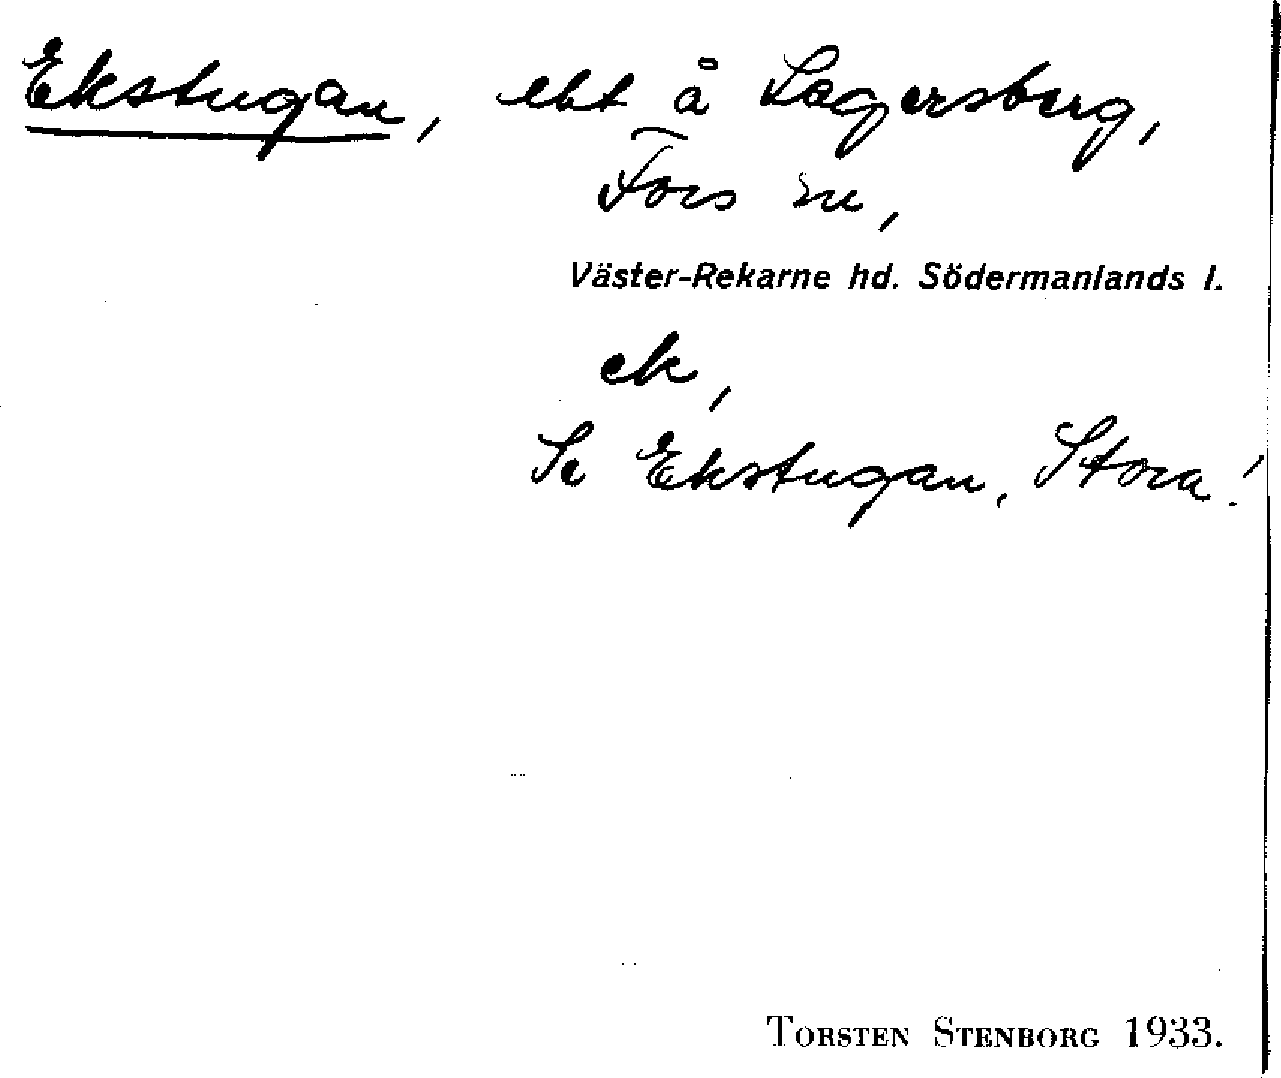 Ekstugan, ebt å Lagersberg,
Fors sn,
Väster-Rekarne hd. Södermanlands l.
ek,
Se Ekstugan, Stora!
TORSTEN STENBORG 1933.